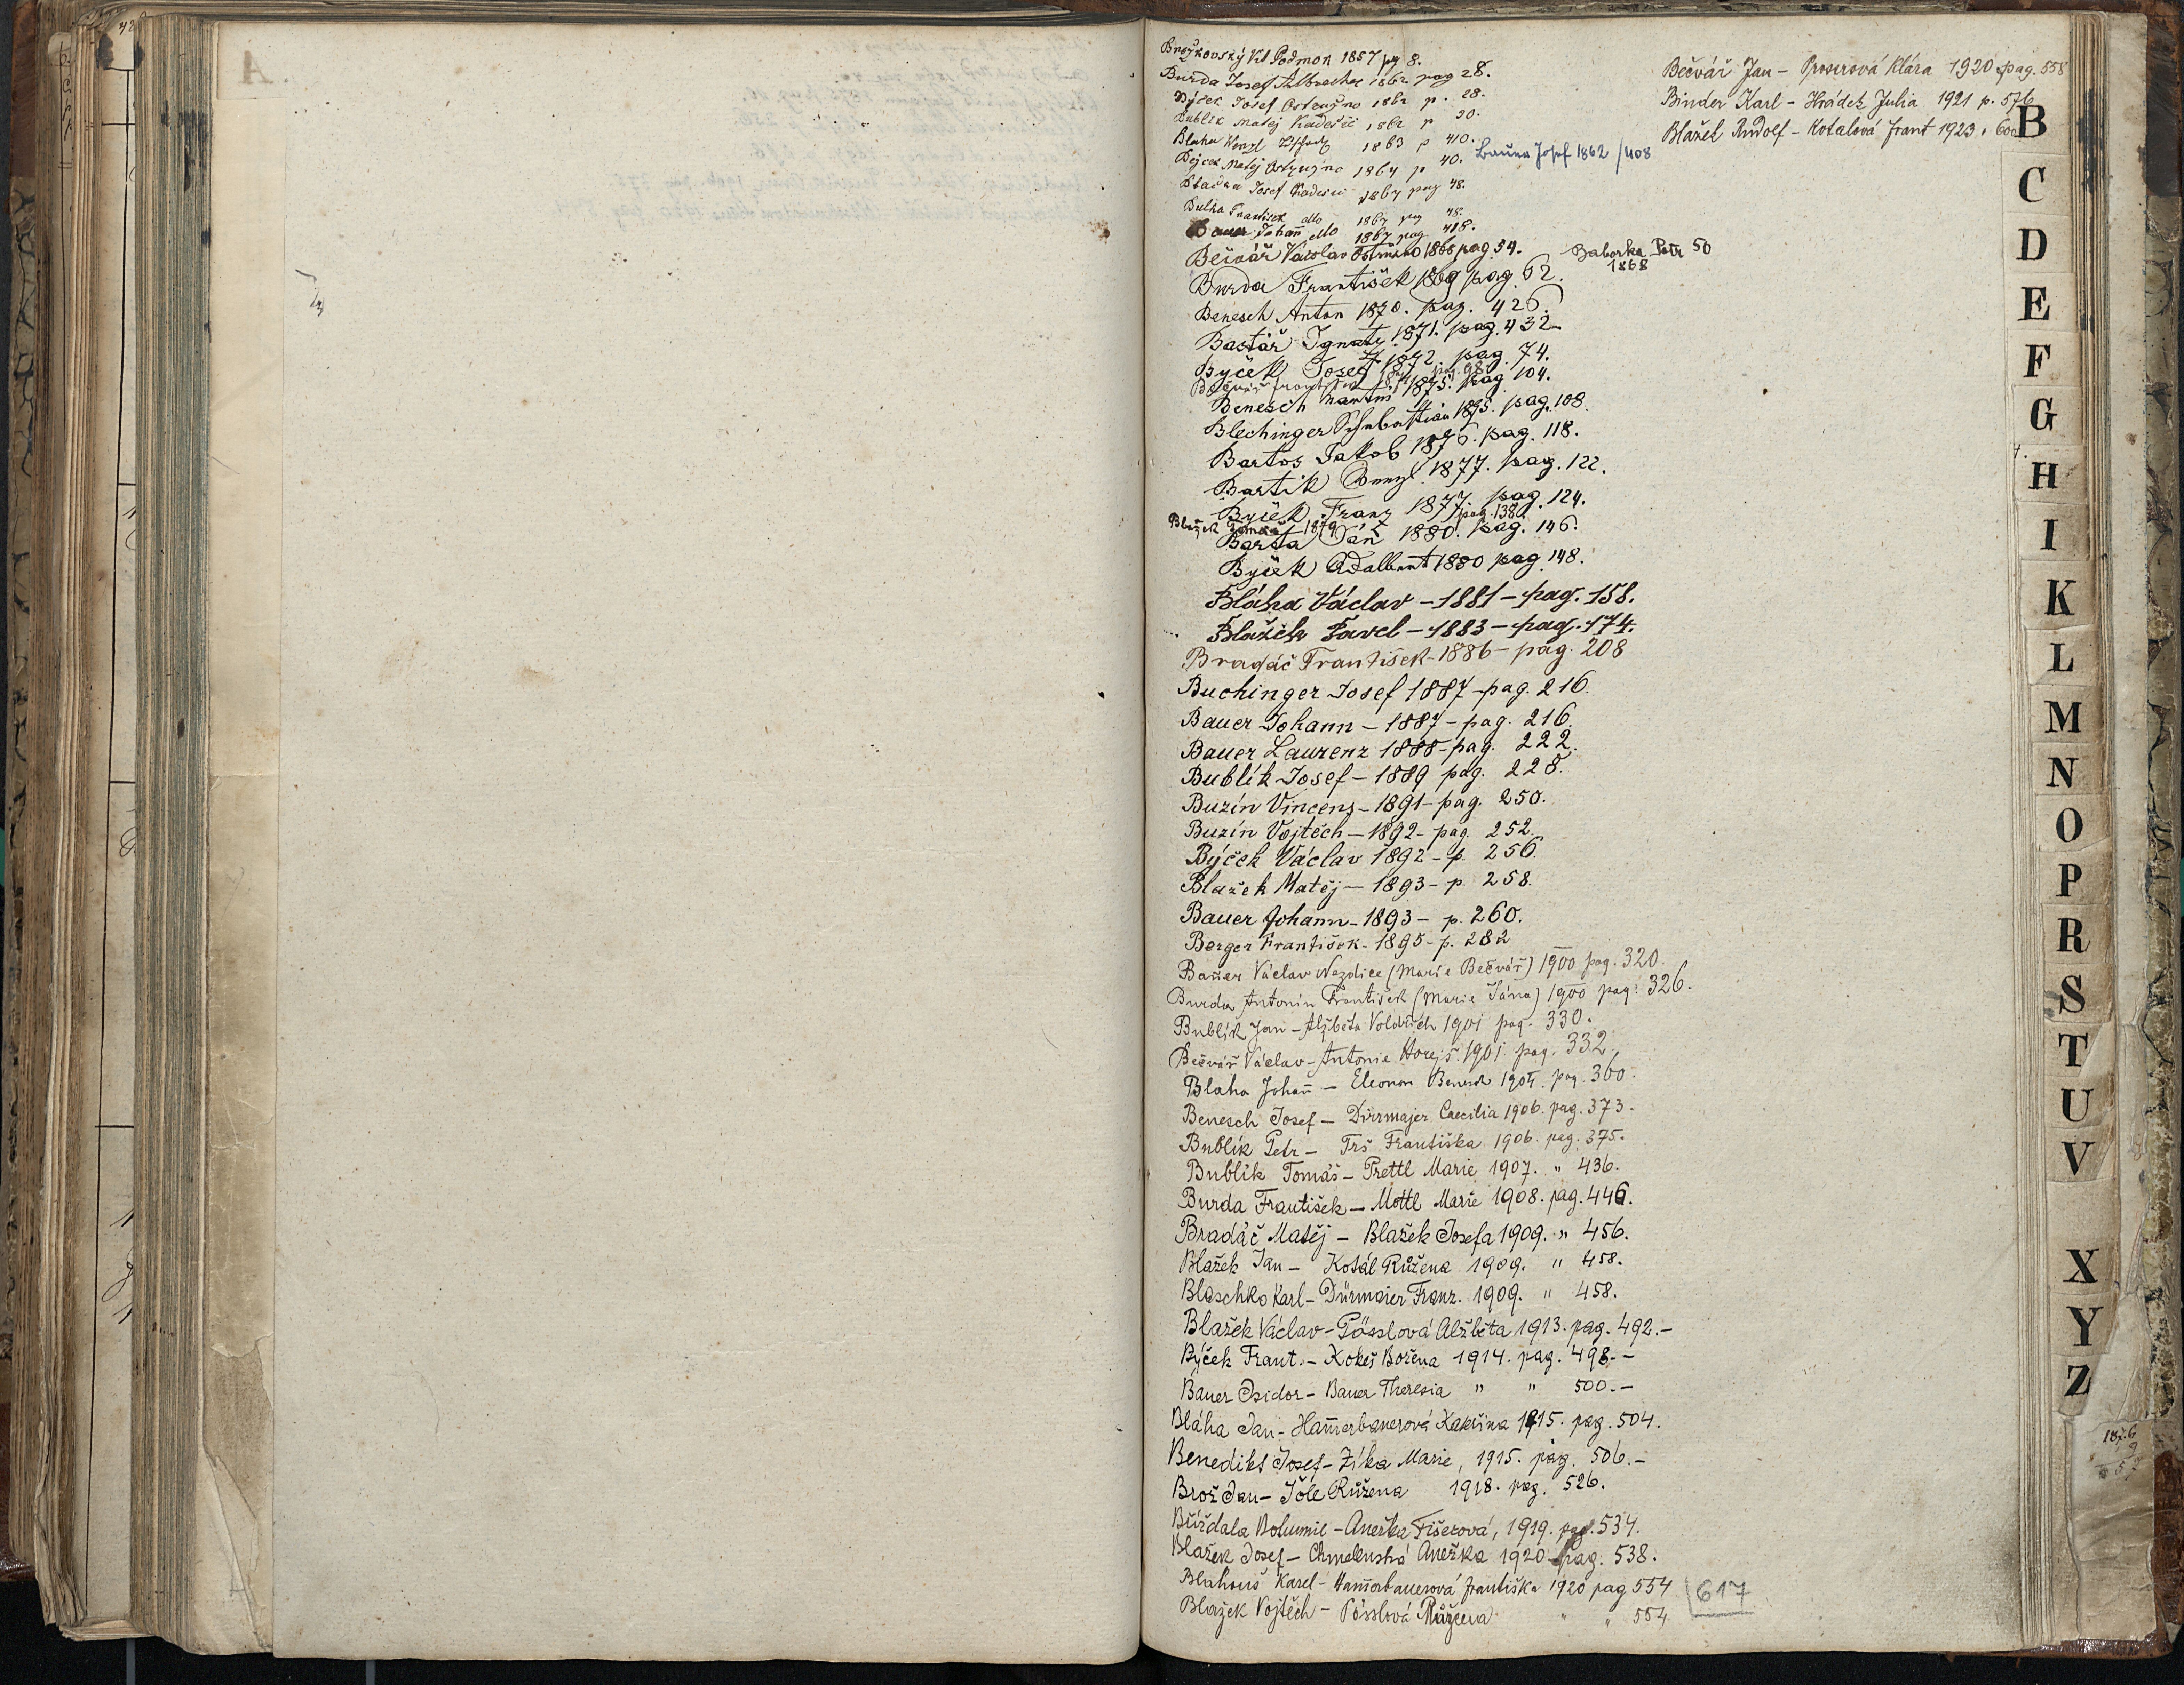 A
Brožkovský Vít Podmok 1857 pg 8.
Burda Josef Albrechec 1862 pag 28.
Býček Josef Ostružno 1862 p. 28.
Bublík Matěj Kadešic 1862 p 30.
Blaha Wenzl 1863 p 410.
Býček Matěj Ostružno 1864 p 40.
Bauer Josef 1862 / 408
Josef Kadešic 1867 pag 48.
František dtto 1867 pag 48.
Bauer Johan̄ dtto 1867 pag 418.
Bečvář Václav Ostružno 1868 pag. 54.
Baborka Petr 50
1868
Burda František 1869 pag. 62.
Benesch Anton 1870. pag. 426.
Bastář Ignatz 1871. pag. 432
Býček Josef 1872. pag. 74.
František pag. 98
Benesch Martin 1875. pag 104.
Blechinger Sebastian 1875. pag. 108.
Bartos Jakob 1876. pag. 118.
Bartík Wenzl 1877. pag. 122.
Býček Franz 1877. pag. 124.
Blažek Tomáš 1879 pag. 138
Barta Ján 1880. pag. 146.
Býček Adalbert 1880 pag 148.
Bláha Václav – 1881 – pag. 158.
Blažek Pavel – 1883 – pag. 174.
Bradáč František – 1886 – pag. 208
Buchinger Josef 1887 – pag. 216.
Bauer Johann – 1887 – pag. 216.
Bauer Laurenz 1888 – pag. 222.
Bublík Josef – 1889 pag. 228.
Buzín Vincenz – 1891 – pag. 250.
Buzín Vojtěch – 1892 – pag. 252.
Býček Václav 1892 – p. 256.
Blažek Matěj – 1893 – p. 258.
Bauer Johann – 1893 – p. 260.
Berger František – 1895 – p. 282
Bauer Václav Nezdice (Marie Bečvář) 1900 pag. 320.
Burda Antonín František (Marie Jána) 1900 pag. 326.
Bublík Jan – Alžběta Voldřich 1901 pag. 330.
Bečvář Václav – Antonie Horejš. 1901 pag. 332.
Blaha Johan̄ – Eleonora Benesch 1904. pag. 360.
Benesch Josef – Dürrmajer Caecilia 1906. pag. 373.
Bublík Petr – Trš Františka 1906. pag. 375.
Bublík Tomáš – Prettl Marie 1907. " 436.
Burda František – Mottl Marie 1908. pag. 446.
Bradáč Matěj – Blažek Josefa 1909. " 456.
Blažek Jan – Kotál Růžena 1909. " 458.
Blaschko Karl – Dürmaier Franz. 1909. " 458.
Blažek Václav – Pösslová Alžběta 1913. pag. 492. –
Býček Frant. – Kokeš Božena 1914. pag. 498. –
Bauer Isidor – Bauer Theresia " " 500. –
Bláha Jan – Ham̄erbauerová Kateřina 1915. pag. 504.
Benedikt Josef – Zíka Marie, 1915. pag. 506. –
Brož Jan – Jôle Růžena 1918. pag. 526.
Bůžďala Bohumil – Anežka Fišerová, 1919. pag. 534.
Blažek Josef – Chmelenská Anežka 1920 – pag. 538.
Blahouš Karel – Ham̄erbauerová Františka 1920 pag 554
Blažek Vojtěch – Pösslová Růžena " " 554
617
Bečvář Jan – Proserová Klára 1920 pag. 558
Binder Karl – Hrádek Julia 1921 p. 576
Blažek Rudolf – Kotalová Frant 1923.
B
C
D
E
F
G
H
I
K
L
M
N
O
P
R
S
T
U
V
X
Y
Z